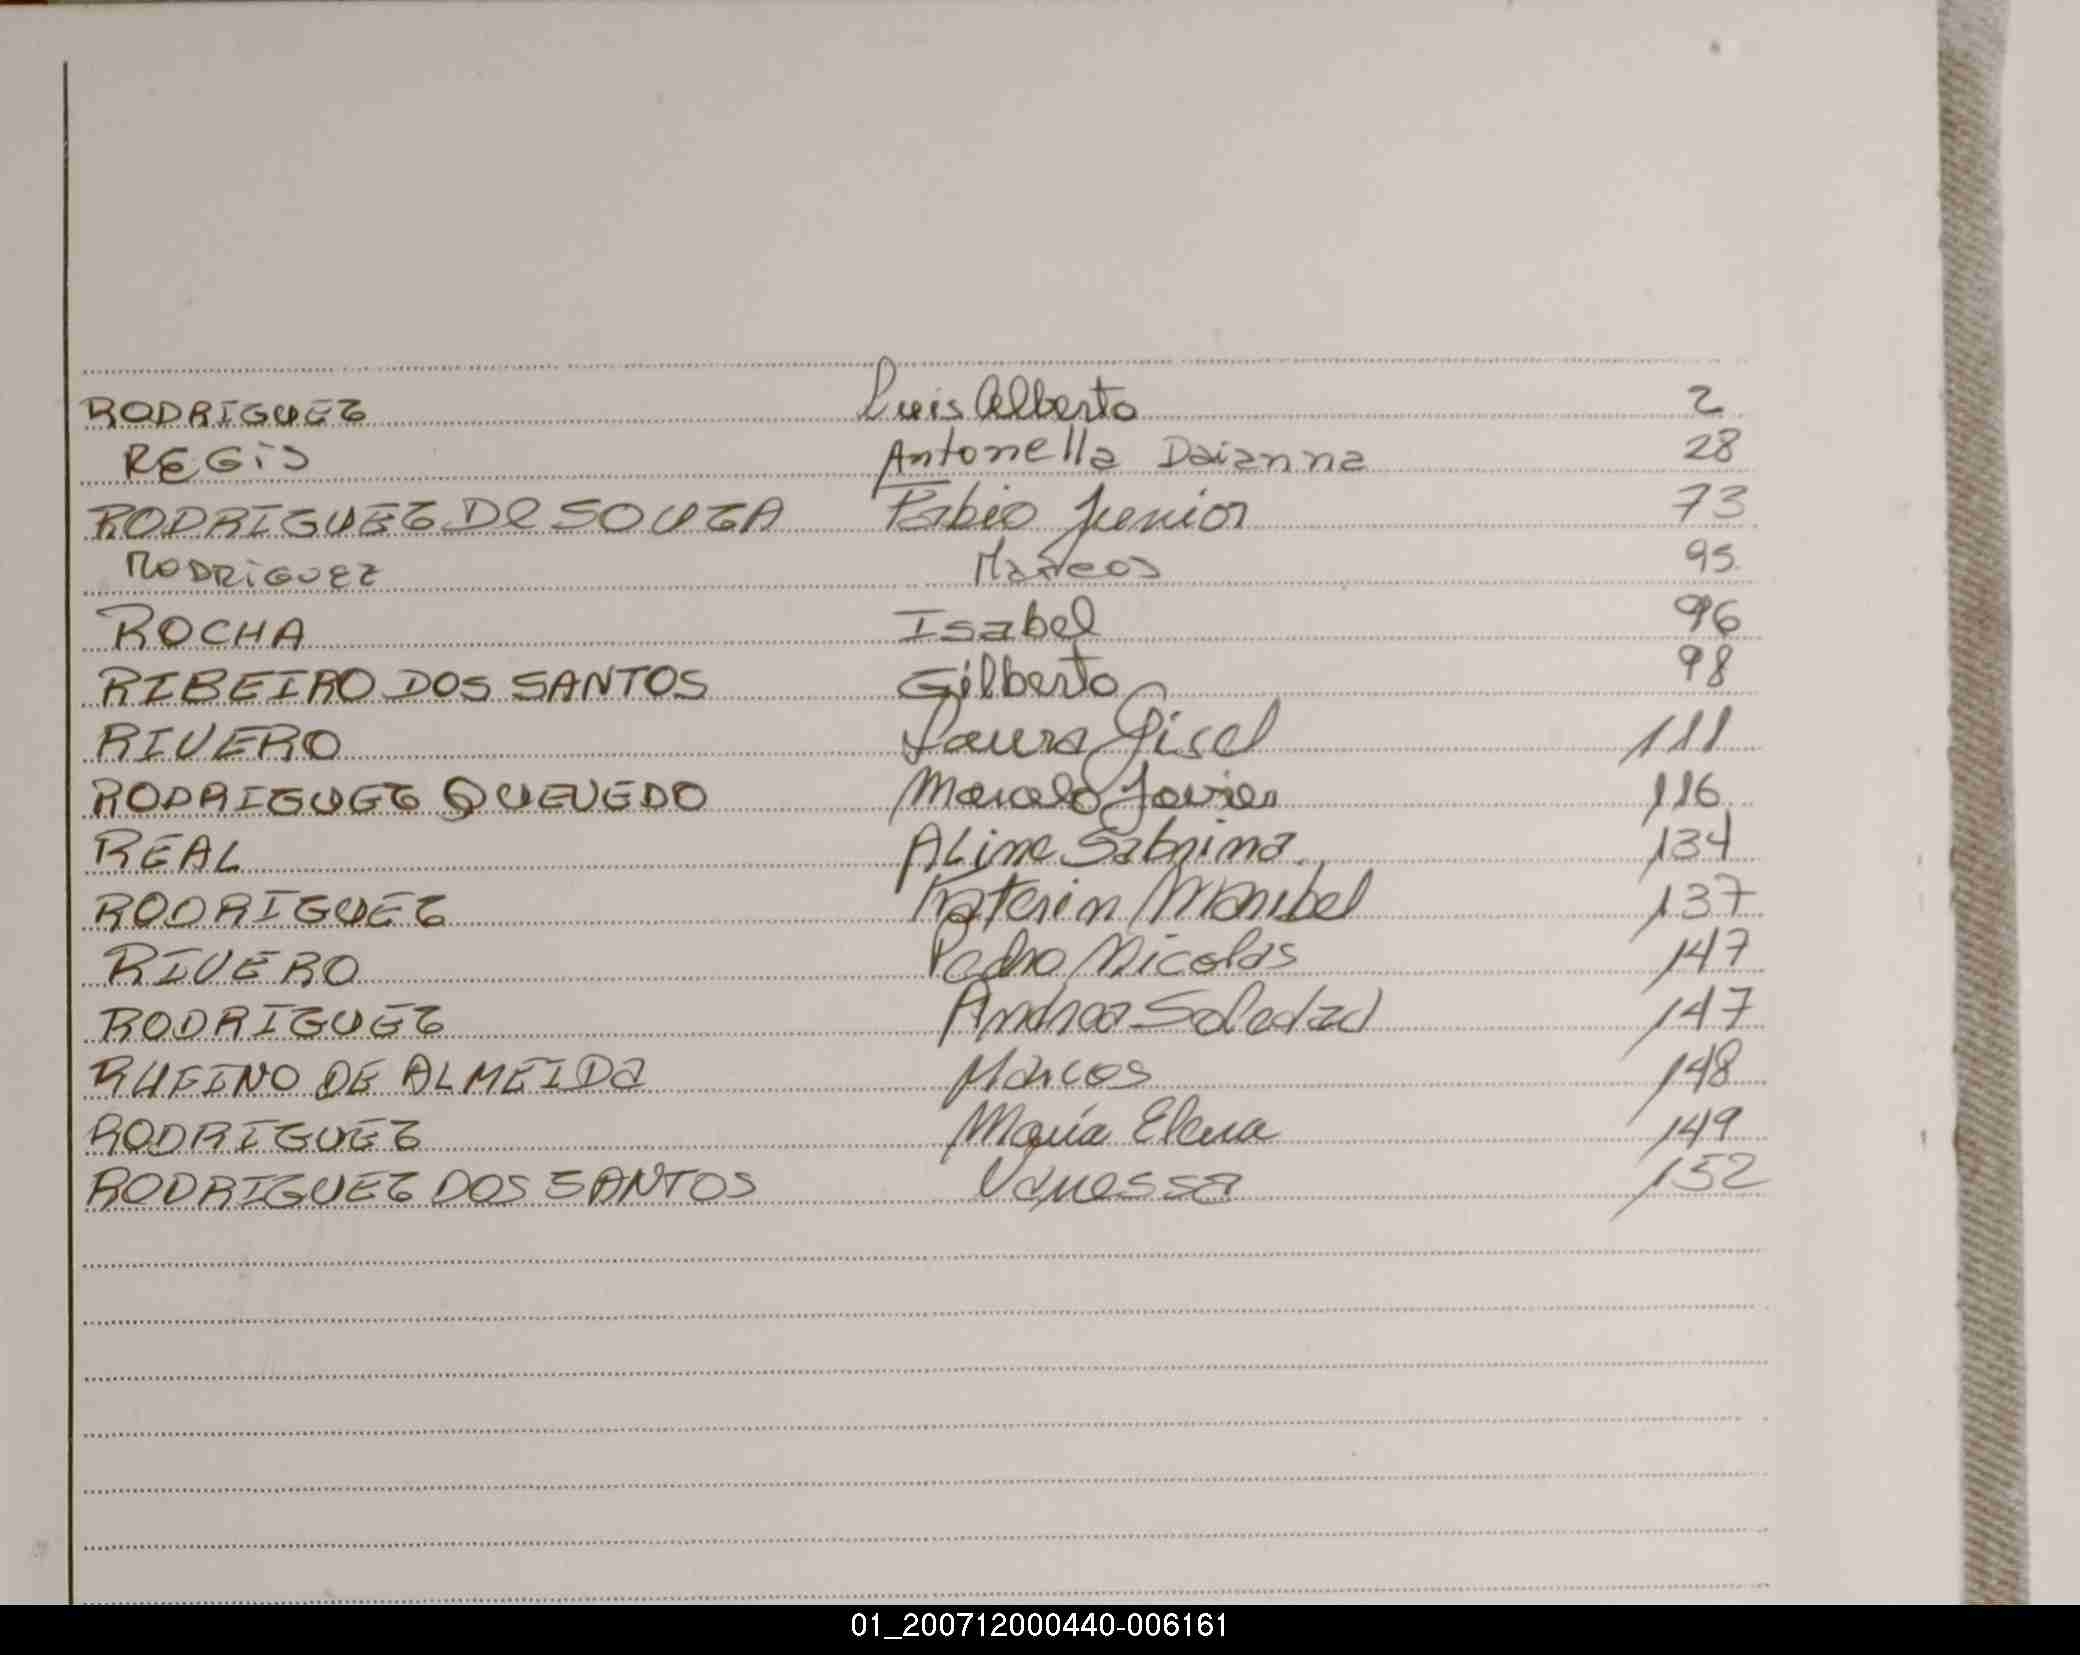 RODRIGUEZ Luis Alberto 2
REGIS Antonella Daianna 28
RODRIGUEZ De SOUZA Fabio Junior 73
RODRIGUEZ Marcos 95
ROCHA Isabel 96
RIBEIRO DOS SANTOS Gilberto 98
RIVERO Laura Gisel 111
RODRIGUEZ QUEVEDO Marcelo Javier 116
REAL ALine Sabrina 134
RODRIGUEZ Katerin Maribel 137
RIVERO Pedro Nicolas 147
RODRIGUEZ Andrea Soledad 147
RUFINO DE ALMEIDA Marcos 148
RODRIGUEZ María Elena 149
RODRIGUEZ DOS SANTOS Vanessa 152
01_200712000440-006161